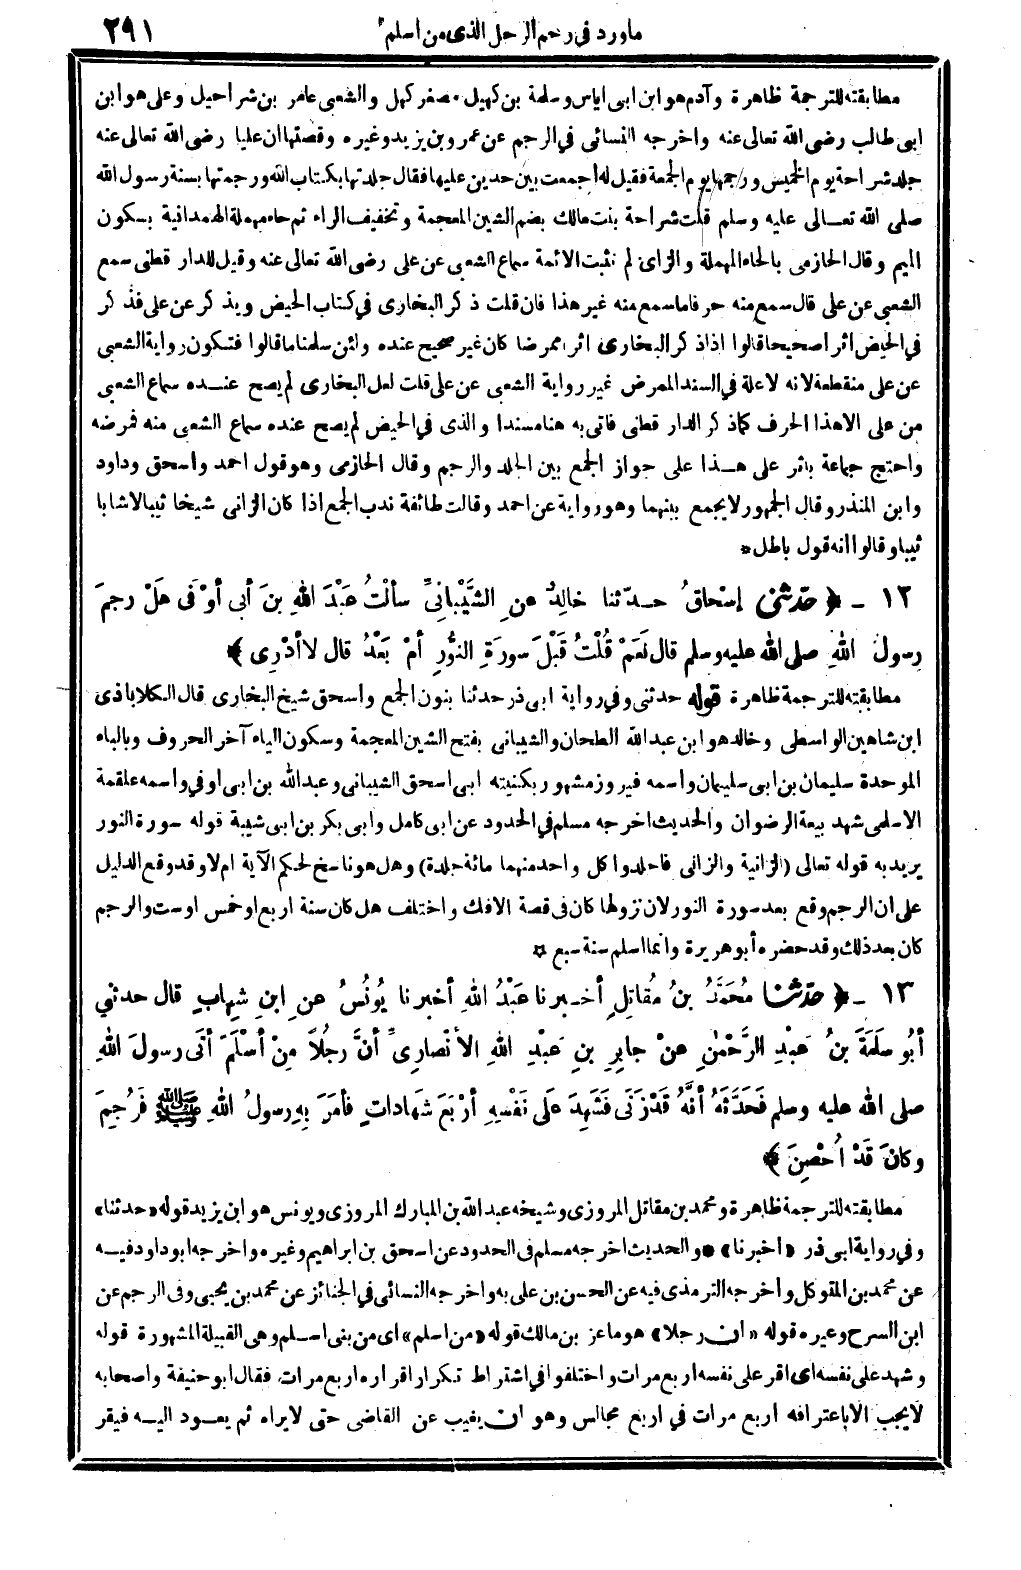 ماورد في رجم الرجل الذي من اسلم ٢٩١
مطابقته للترجمة ظاهرة وآدم هو ابن ابى اياس وسلمة بن كهيل مصغر كهل والشعبى عامر بن شراحيل وعلى هو ابن
ابى طالب رضى الله تعالى عنه واخرجه النسائى في الرجم عن عمرو بن يزيد وغيره وقصتها ان عليا رضى الله تعالى عنه
جلد شراحة يوم الخميس ورجمها يوم الجمعة فقيل له أجمعت بين حدين عليها فقال جلدتها بكتاب الله ورجمتها بسنة رسول الله
صلى الله تعـالى عليه وسلم قلت شراحة بنت مالك بضم الشين المعجمة وتخفيف الراء ثم حاء مهملة الهمدانية بسكون
الميم وقال الحازمى بالحاء المهملة والزاى لم تثبت الائمة سماع الشعبى عن على رضى الله تعالى عنه وقيل للدار قطنى سمع
الشعبى عن على قال سمع منه حرفا ما سمع منه غير هذا فان قلت ذكر البخارى في كتاب الحيض ويذكر عن على فذكر
في الحيض أثر أصحيحا قالوا اذا ذكر البخارى اثرا ممرضا كان غير صحيح عنده ولئن سلمنا ما قالوا فتكون رواية الشعبى
عن على منقطعة لانه لا علة في السند الممرض غير رواية الشعبى عن على قلت لعل البخارى لم يصح عنـــده سماع الشعبى
من على الا هذا الحرف كما ذكر الدار قطنى فاتى به هنا مسندا والذى في الحيض لم يصح عنده سماع الشعبى منه فمرضه
واحتج جماعة باثر على هـــذا على جواز الجمع بين الجلد والرجم وقال الحازمى وهو قول احمد واسحق وداود
وابن المنذر وقال الجمهور لا يجمع بينهما وهو رواية عن احمد وقالت طائفة ندب الجمع اذا كان الزانى شيخا ثيبا لا شابا
ثيبا وقالوا انه قول باطل *
١٢ ـ ﴿ حدّثنى إسْحاقُ حـدّثنا خالِدٌ عنِ الشَّيْبانِىِّ سألْتُ عبْدَ اللهِ بنَ أبي أوْفَى هَلْ رجمَ
رسولُ اللهِ صلى الله عليه وسلم قال نَعَمْ قُلْتُ قَبْلَ سورَةِ النُّورِ أمْ بَعْدُ قال لا أدْرِى ﴾
مطابقته للترجمة ظاهرة قوله حدثنى وفي رواية ابى ذر حدثنا بنون الجمع واسحق شيخ البخارى قال الكلاباذى
ابن شاهين الواسطى وخالد هو ابن عبد الله الطحان والشيبانى بفتح الشين المعجمة وسكون الياء آخر الحروف وبالباء
الموحدة سليمان بن ابى سليمان واسمه فيروز مشهور بكنيته ابى اسحق الشيبانى وعبد الله بن ابى اوفي واسمه علقمة
الاسلمى شهد بيعة الرضوان والحديث اخرجه مسلم في الحدود عن ابى كامل وابى بكر بن ابى شيبة قوله سورة النور
يريد به قوله تعالى (الزانية والزانى فاجلدوا كل واحد منهما مائة جلدة) وهل هو ناسخ لحكم الآية ام لا وقد وقع الدليل
على ان الرجم وقع بعد سورة النور لان نزولها كان فى قصة الافك واختلف هل كان سنة اربع او خمس او ست والرجم
كان بعد ذلك وقد حضره أبو هريرة وانما اسلم سنة سبع *
١٣ ـ ﴿ حدّثنا مُحَمَّدُ بنُ مُقاتِلٍ أخـبرنا عَبْدُ اللهِ أخبرنا يُونُسُ عنِ ابنِ شِهابٍ قال حدثني
أبُو سلَمَةَ بنُ عبدِ الرَّحْمٰنِ عنْ جابِرِ بنِ عبدِ اللهِ الأنْصارِىِّ أنَّ رجُلاً مِنْ أسْلَمَ أتَى رسولَ اللهِ
صلى الله عليه وسلم فَحَدَّثَهُ أنَّهُ قَدْ زَنَى فَشَهِدَ علَى نَفْسِهِ أرْبَعَ شَهاداتٍ فأمَرَ بِهِ رسولُ اللهِ ﷺ فَرُجِمَ
وكانَ قَدْ أُحْصِنَ ﴾
مطابقته للترجمة ظاهرة ومحمد بن مقاتل المروزى وشيخه عبد الله بن المبارك المروزى ويونس هو ابن يزيد قوله «حدثنا»
وفي رواية ابى ذر «اخبرنا» * والحديث اخرجه مسلم فى الحدود عن اسحق بن ابراهيم وغيره واخرجه ابو داود فيــه
عن محمد بن المتوكل وأخرجه الترمذى فيه عن الحسن بن على به واخرجه النسائى في الجنائز عن محمد بن يحيى وفى الرجم عن
ابن السرح وغيره قوله «ان رجلا» هو ماعز بن مالك قوله «من اسلم» اى من بنى اسـلم وهى القبيلة المشهورة قوله
وشهد على نفسه اى اقر على نفسه اربع مرات واختلفوا في اشتراط تكرار اقراره اربع مرات فقال ابو حنيفة واصحابه
لا يجب الا باعترافه اربع مرات في اربع مجالس وهو ان يغيب عن القاضى حتى لا يراه ثم يعـود اليـه فيقر